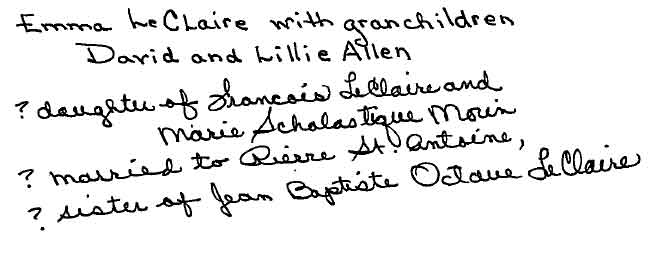 Emma LeClaire with granchildren
David and Lillie Allen
? daughter of Francois LeClaire and
Marie Scholastique Morin
? married to Pierre St. Antoine,
? sister of Jean Baptiste Octave LeClaire